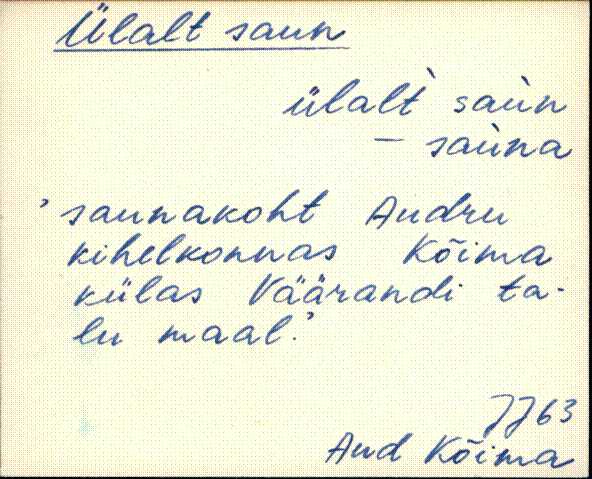 Ülalt saun
ülal̀t saùn
– saùna
’saunakoht Audru
kihelkonnas Kõima
külas Väärandi ta-
lu maal.’
JJ63
Aud Kõima